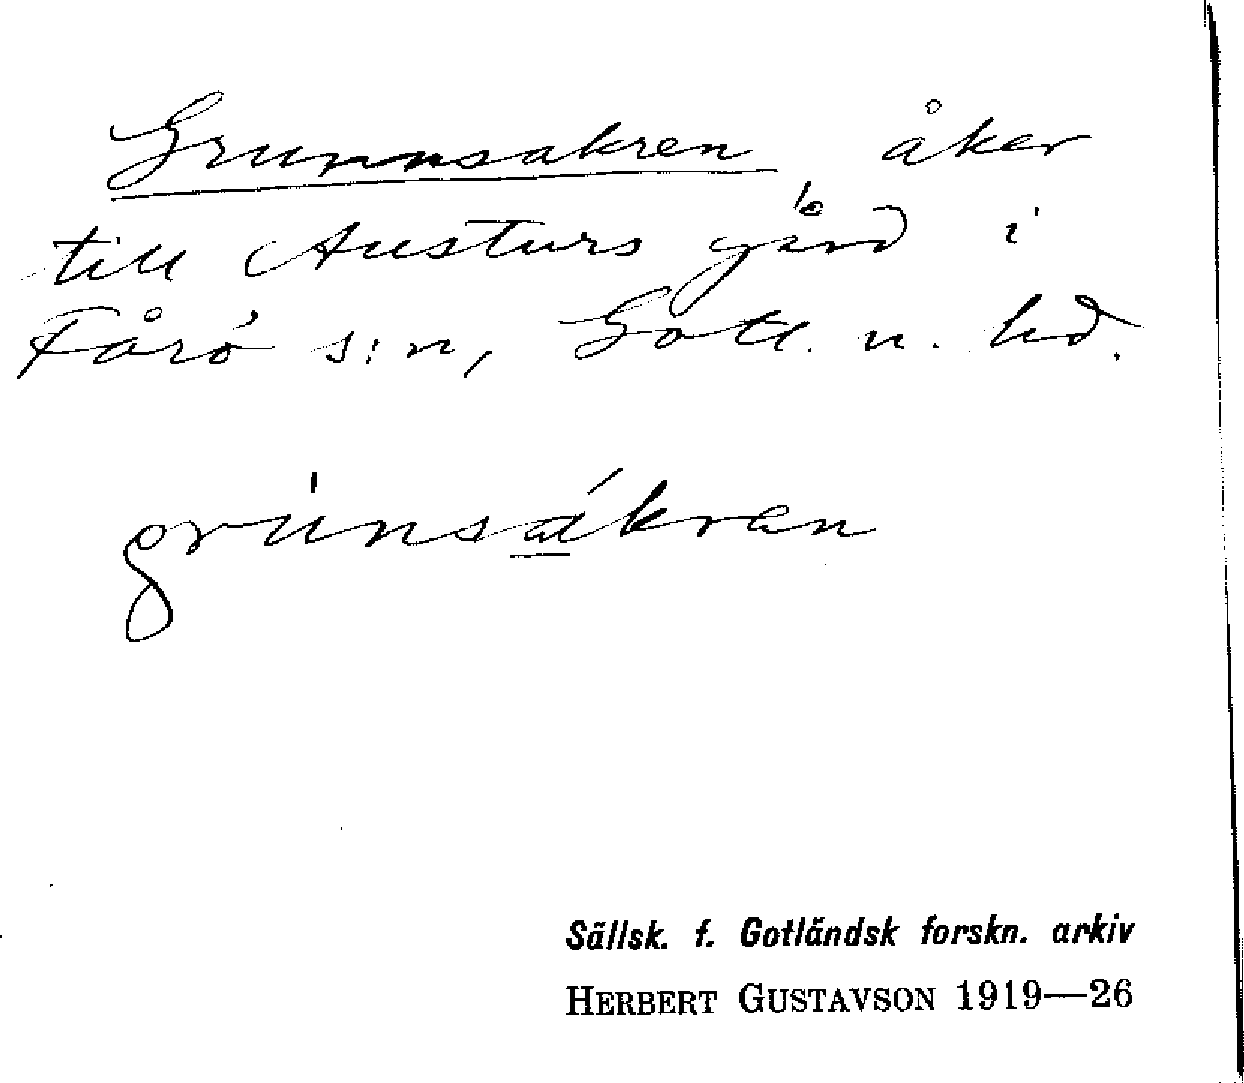 Grunnsakren åker
till Austurs gård i
Fårö s:n, Gotl. n. hd.
grùnsákran
Sällsk. f. Gotländsk forskn. arkiv
HERBERT GUSTAVSON 1919—26